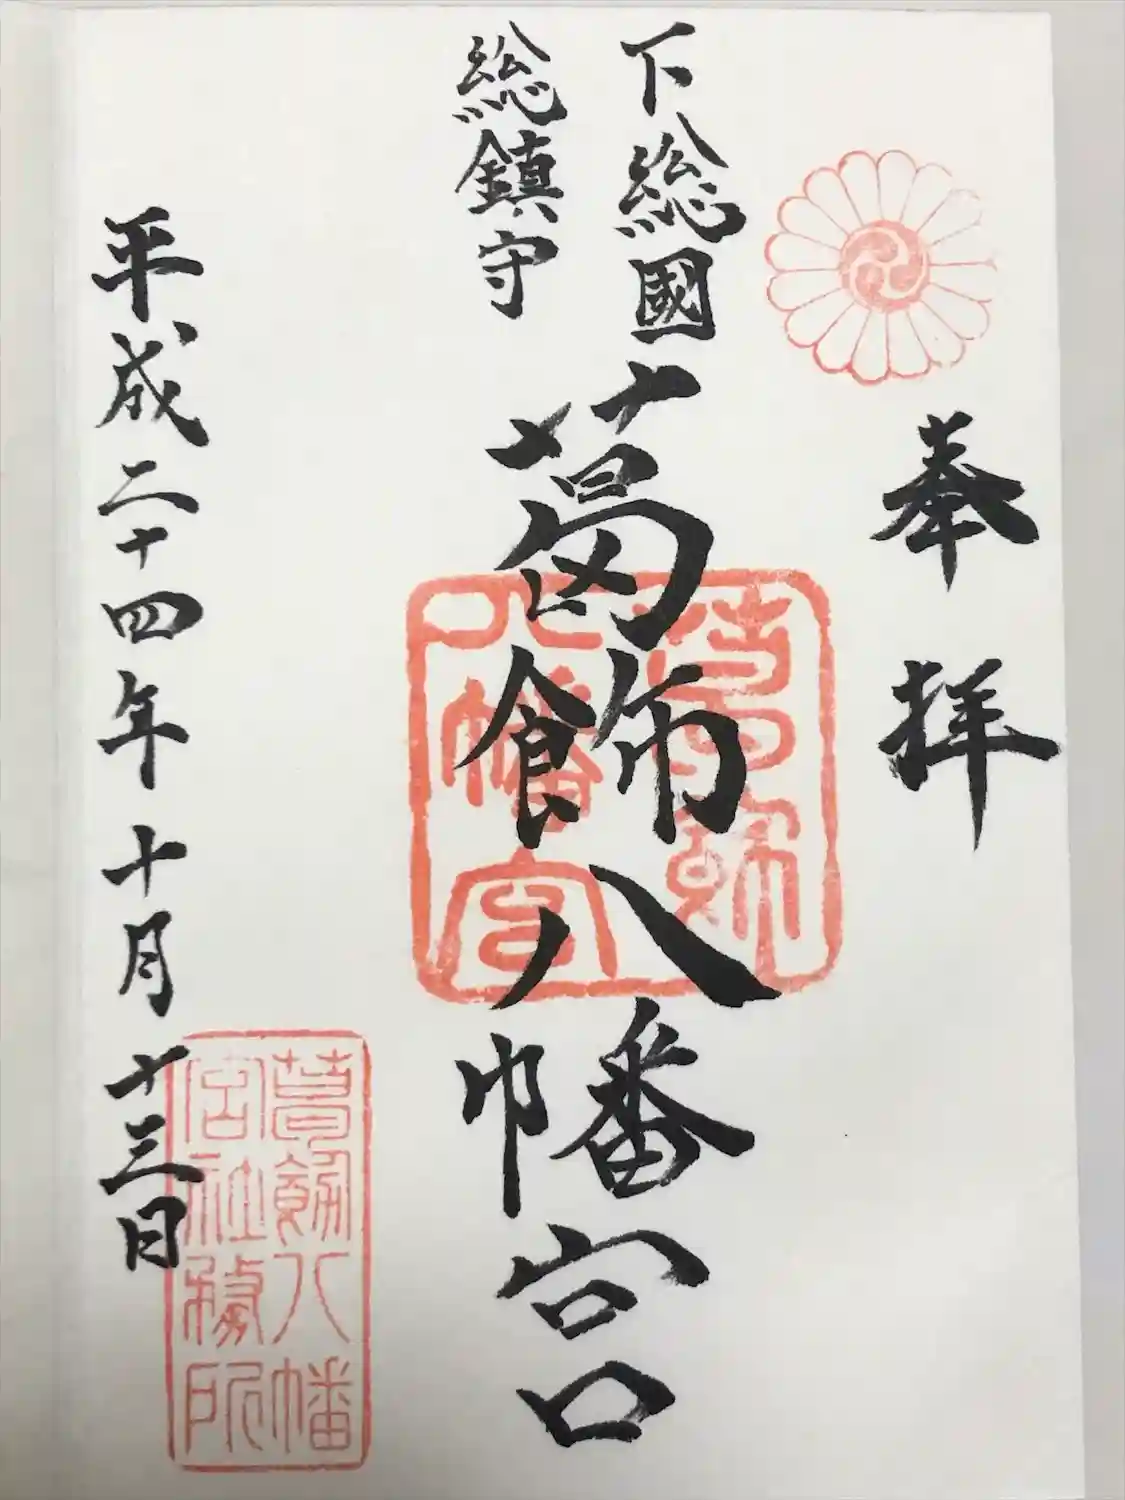 奉拝
下総國
総鎮守
葛飾八幡宮
平成二十四年十月十三日
葛飾
八幡宮
葛飾八幡
宮社務所